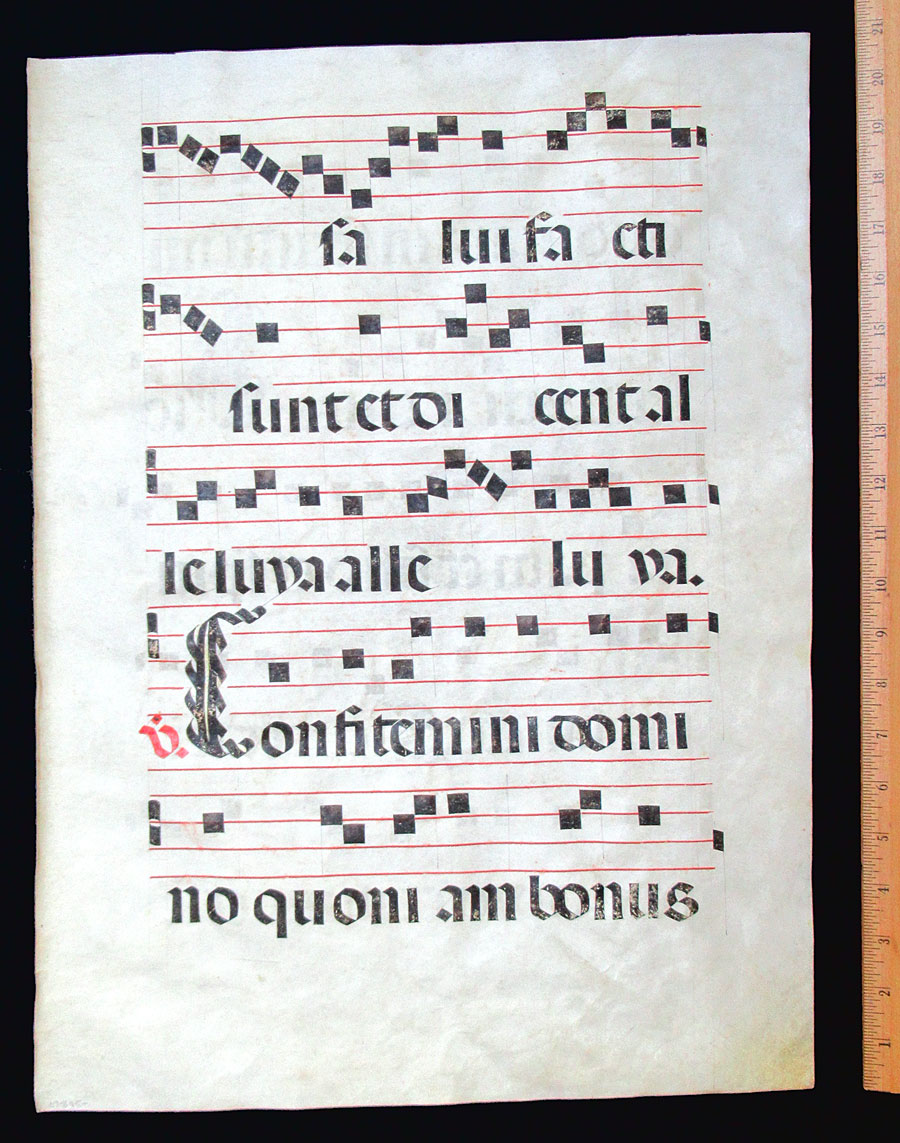 sa lui fa cti
sunt et di cent al
le luya alle lu ya.
℣. Confitemini domi
no quoni am bonus
21
20
19
18
17
16
15
14
13
12
11
10
9
8
7
6
5
4
3
2
1